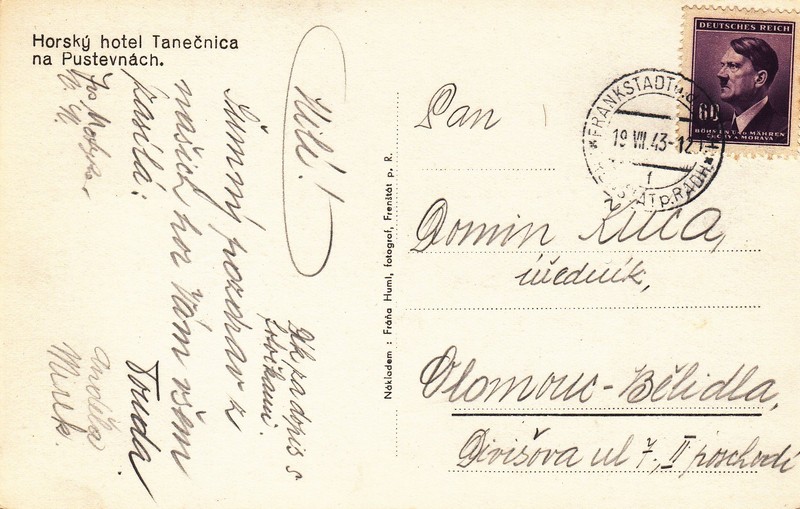 Horský hotel Tanečnica
na Pustevnách.
Milí!
Šumný pozdrav z
našich hor Vám všem
posílá:
Touda.
Mirek.
Dík za dopis s
Nákladem : Fráňa Huml, fotograf, Frenštát p. R.
DEUTSCHES REICH
60
BÖHMEN U. MÄHREN
ČECHY A MORAVA
FRANKSTADT
19 VII. 43-12
1
ŠTÁT p. RADH.
Pan
Domin
úředník,
Olomouc-Bělidla,
Divišova ul 7, II poschodí